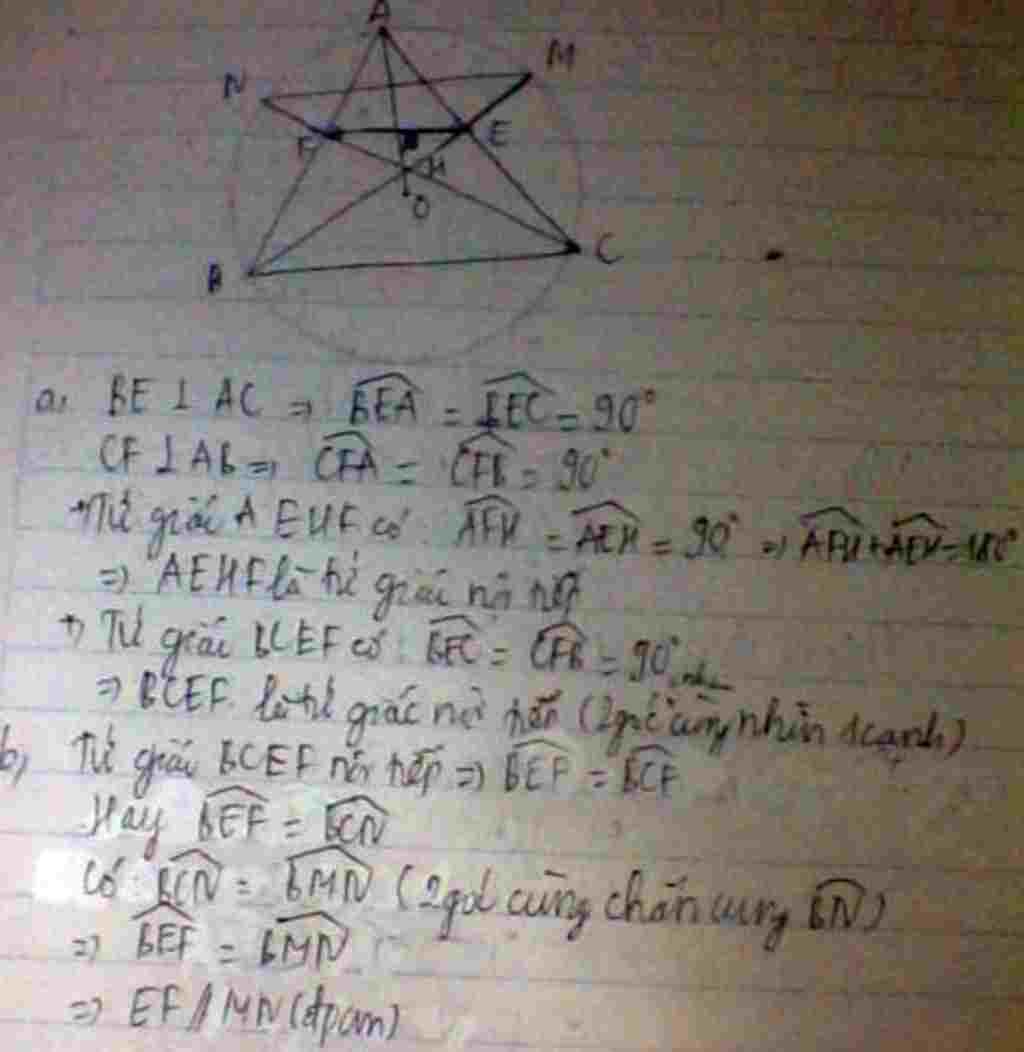 A
N
M
F
E
H
O
B
C
a, BE ⊥ AC ⇒ \widehat{BEA} = \widehat{BEC} = 90°
CF ⊥ AB ⇒ \widehat{CFA} = \widehat{CFB} = 90°
+ Tứ giác AEHF có: \widehat{AFH} = \widehat{AEH} = 90° ⇒ \widehat{AFH} + \widehat{AEH} = 180°
⇒ AEHF là tứ giác nội tiếp
+, Tứ giác BCEF có: \widehat{BEC} = \widehat{CFB} = 90°
⇒ BCEF là tứ giác nội tiếp (2 góc cùng nhìn 1 cạnh)
b) Tứ giác BCEF nội tiếp ⇒ \widehat{BEF} = \widehat{BCF}
Hay \widehat{BEF} = \widehat{BCN}
Có \widehat{BCN} = \widehat{BMN} (2 góc cùng chắn cung \widehat{BN})
⇒ \widehat{BEF} = \widehat{BMN}
⇒ EF // MN (đpcm)